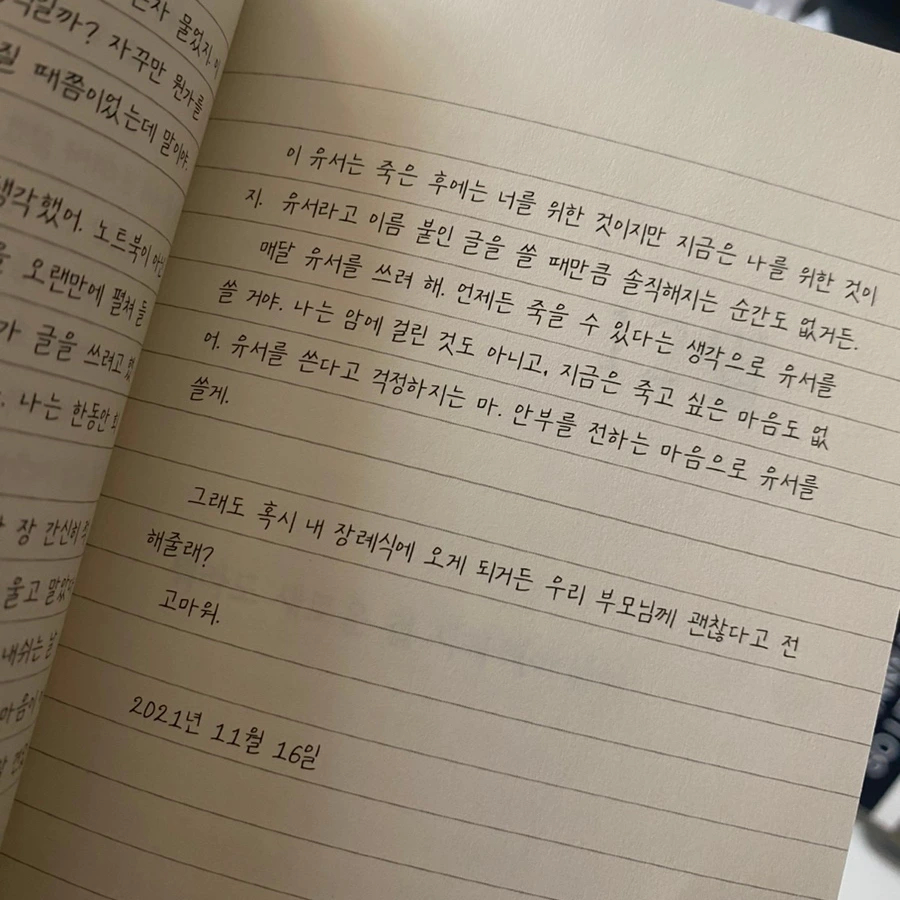 혼자 물었지. 이
일까? 자꾸만 뭔가를
질 때쯤이었는데 말이야.
생각했어. 노트북이 아닌
오랜만에 펼쳐 들
가 글을 쓰려고 했
나는 한동안
장 간신히
울고 말았
내쉬는 날
마음이
이 유서는 죽은 후에는 너를 위한 것이지만 지금은 나를 위한 것이
지. 유서라고 이름 붙인 글을 쓸 때만큼 솔직해지는 순간도 없거든.
매달 유서를 쓰려 해. 언제든 죽을 수 있다는 생각으로 유서를
쓸 거야. 나는 암에 걸린 것도 아니고, 지금은 죽고 싶은 마음도 없
어. 유서를 쓴다고 걱정하지는 마. 안부를 전하는 마음으로 유서를
쓸게.
그래도 혹시 내 장례식에 오게 되거든 우리 부모님께 괜찮다고 전
해줄래?
고마워.
2021년 11월 16일